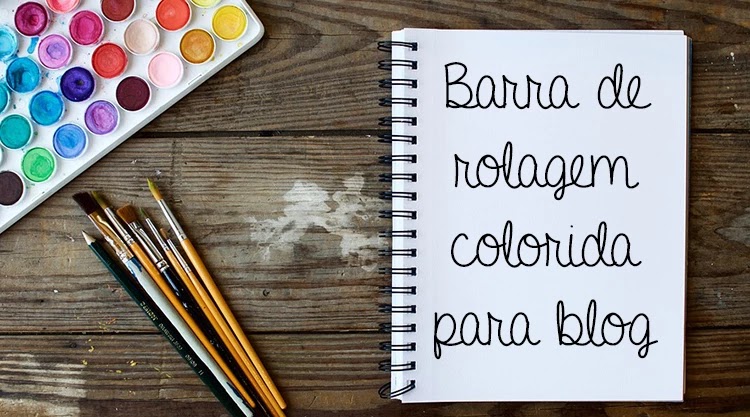 Barra de
rolagem
colorida
para blog